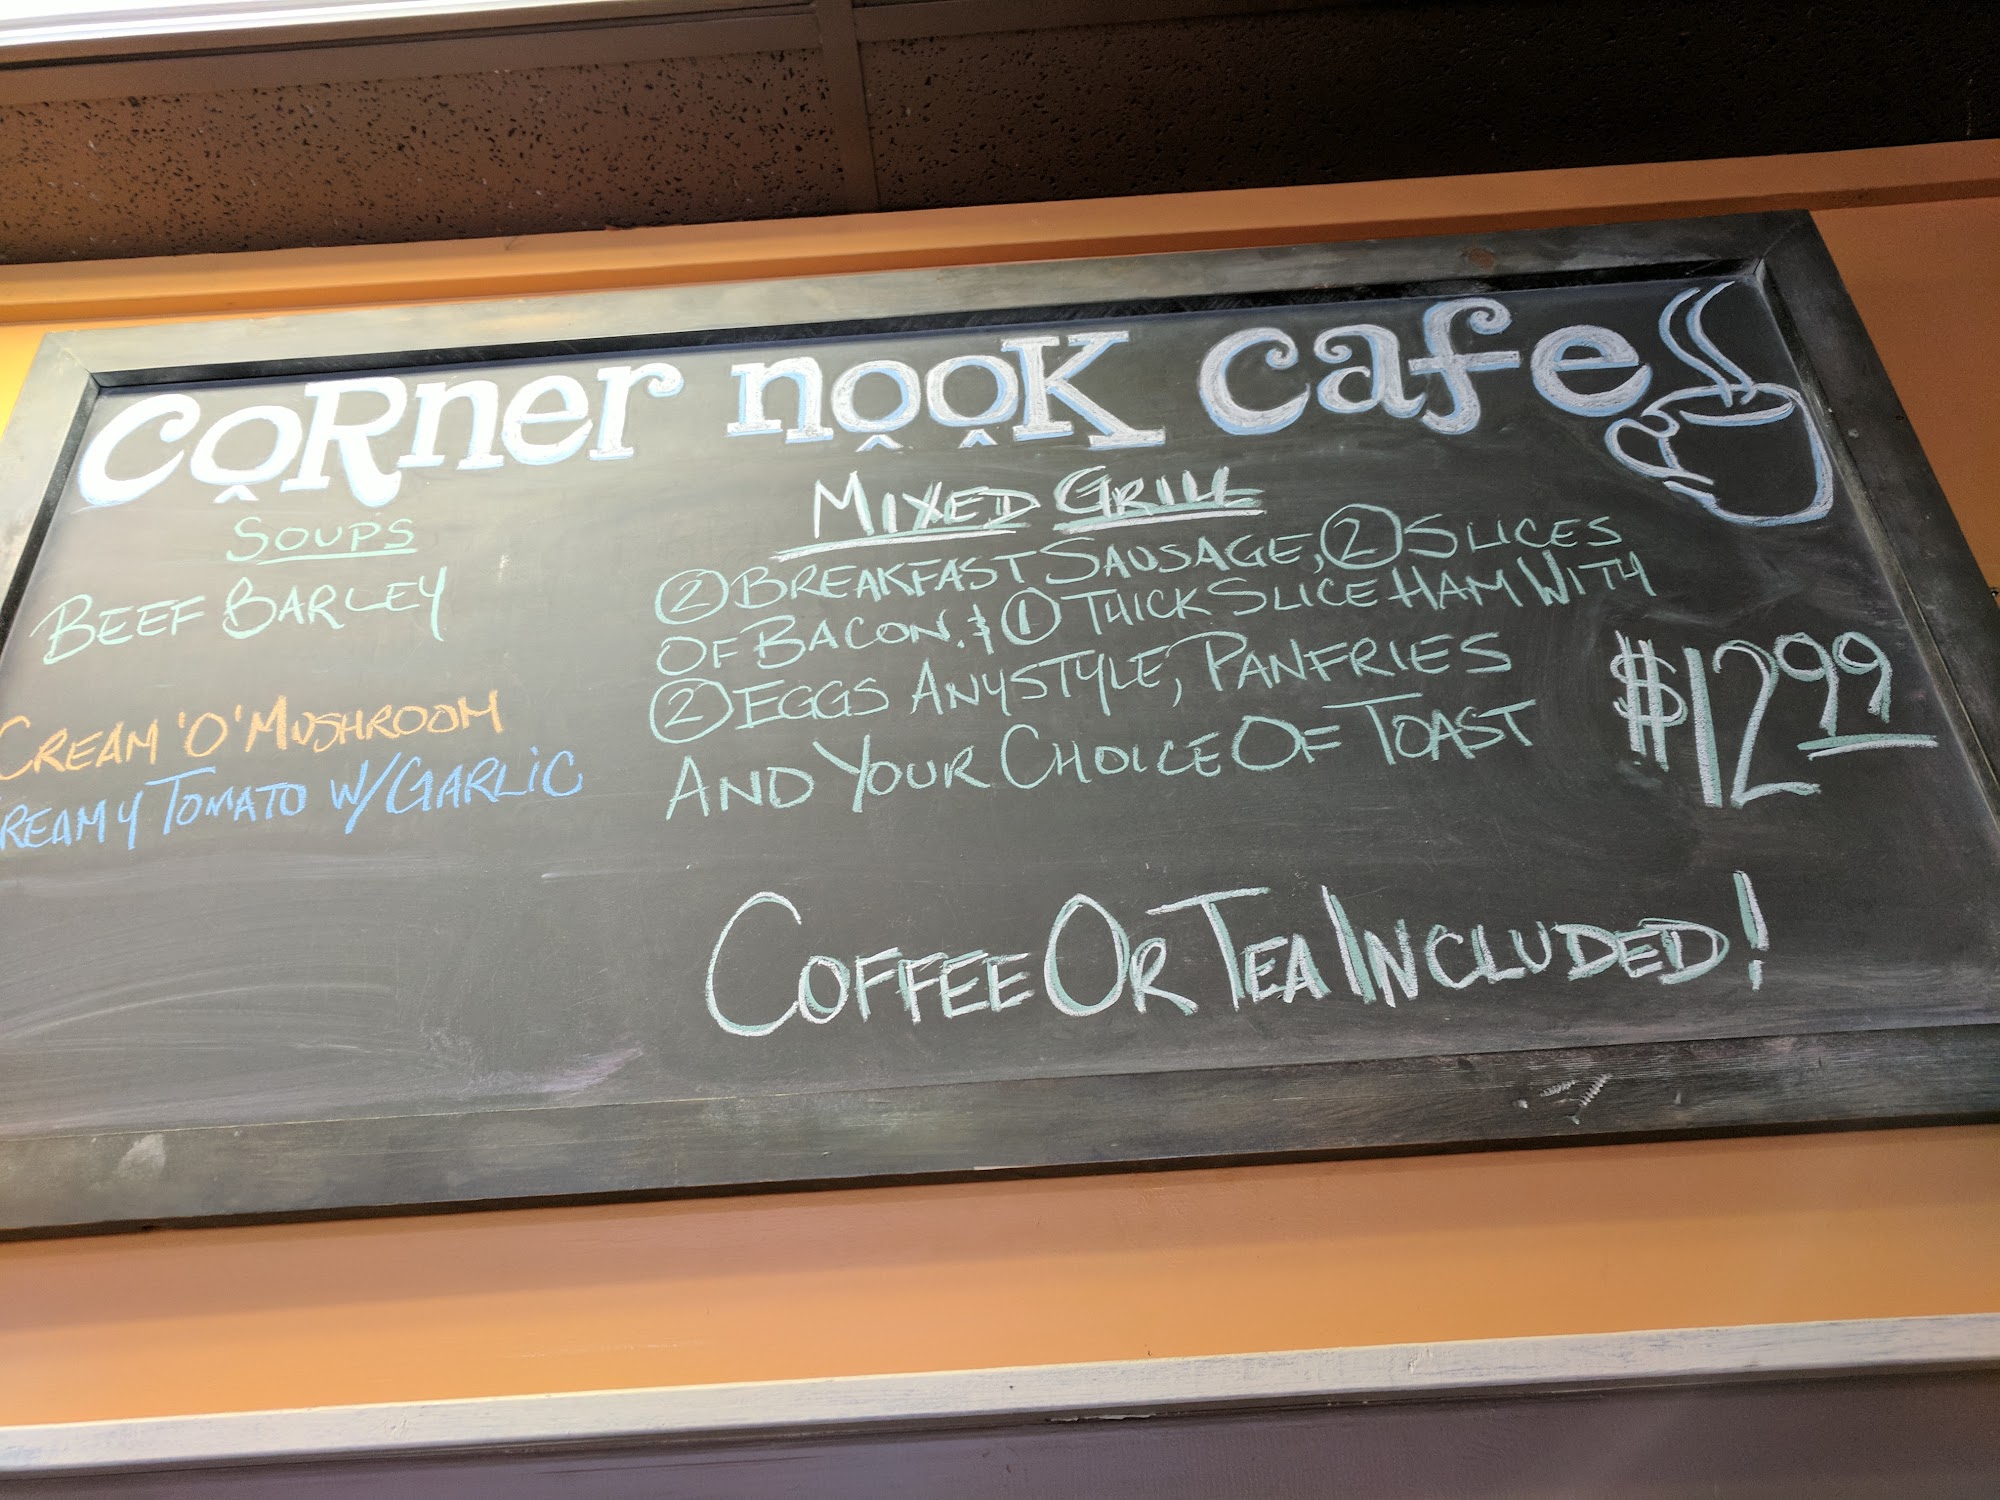 CORNER NOOK CAFE
SOUPS
BEEF BARLEY
CREAM 'O' MUSHROOM
REAMY TOMATO W/GARLIC
MIXED GRILL
2 BREAKFAST SAUSAGE, 2 SLICES
OF BACON. & 1 THICK SLICE HAM WITH
2 EGGS ANYSTYLE, PANFRIES
AND YOUR CHOICE OF TOAST
$12.99
COFFEE OR TEA INCLUDED!